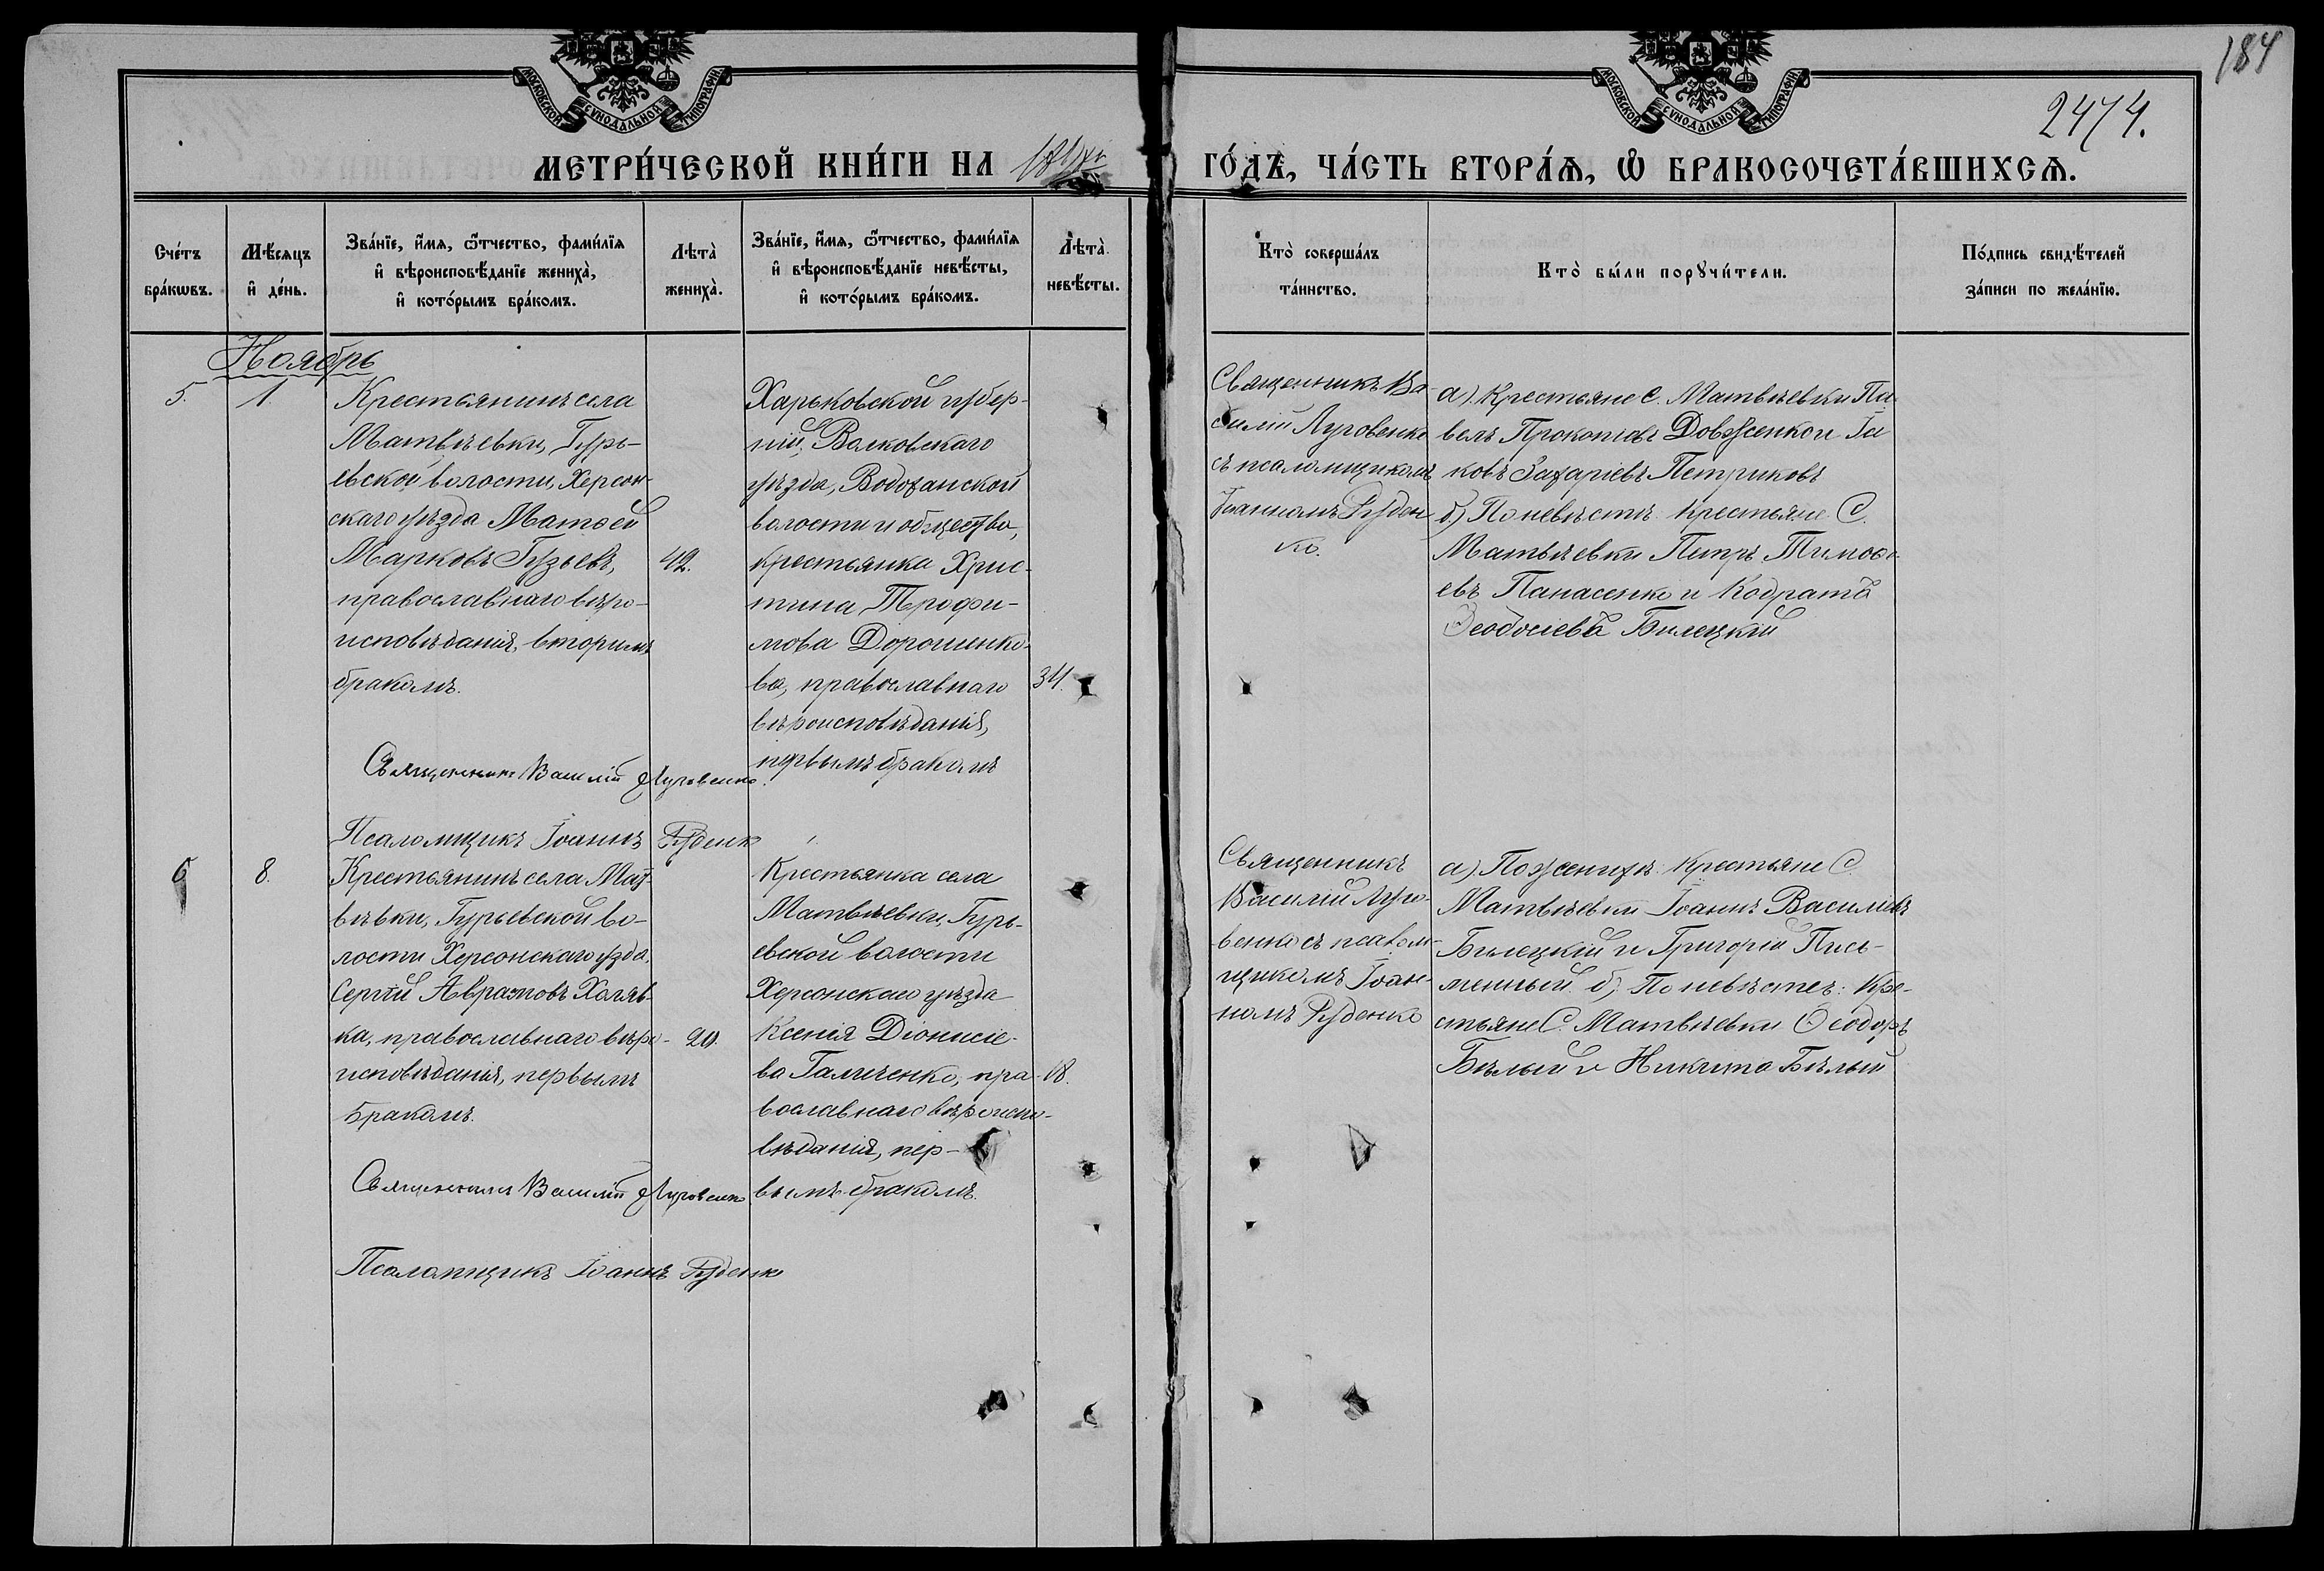 184
2474.
МОСКОВСКОЙ СѴНОДАЛЬНОЙ ТИПОГРАФІИ
МОСКОВСКОЙ СѴНОДАЛЬНОЙ ТИПОГРАФІИ
МЕТРИ́ЧЕСКОЙ КНИ́ГИ НА
ГО́ДЪ, ЧА́СТЬ ВТОРА́Ѧ, Ѽ БРАКОСОЧЕТА́ВШИХСѦ.
Сче́тъ бра́кѡвъ.
Мѣ́сѧцъ и҆ де́нь.
Зва́нїе, и҆́мѧ, ѻ҆́тчество, фами́лїѧ
и҆ вѣроисповѣ́данїе жениха̀,
и҆ кото́рымъ бра́комъ.
Лѣта̀ жениха̀.
Зва́нїе, и҆́мѧ, ѻ҆́тчество, фами́лїѧ
и҆ вѣроисповѣ́данїе невѣ́сты,
и҆ кото́рымъ бра́комъ.
Лѣта̀ невѣ́сты.
Кто̀ соверша́лъ
та́инство.
Кто̀ бы́ли порꙋчи́тели.
По́дпись свидѣ́телей
за́писи по жела́нїю.
Ноябрь
5.
1.
Крестьянинъ села
Матвѣевки, Гурь-
евской волости, Херсон-
скаго уѣзда Матѳей
Марковъ Гузьевъ,
православнаго вѣро-
исповѣданія, вторымъ
бракомъ.
42.
Харьковской губер-
ніи, Волковскаго
уѣзда, Водолжанской
волости и общества,
крестьянка Хрис-
тина Трофи-
мова Дорошенко-
ва, православнаго
вѣроисповѣданія,
первымъ бракомъ
34.
Священникъ Ва-
силій Луговенко
съ псаломщикомъ
Іоанномъ Руден
ко.
а) Крестьяне С. Матвѣевки Па
велъ Прокопіевъ Довженко и Іа
ковъ Захаріевъ Петриковъ
б) По невѣстѣ крестьяне С.
Матвѣевки Петръ Тимоѳе-
евъ Панасенко и Кодратъ
Ѳеодосіевъ Билецкій
Священникъ Василій Луговенко.
Псаломщикъ Іоаннъ Руденко
6
8.
Крестьянинъ села Мат-
вѣвки, Гурьевской во-
лости Херсонскаго уѣзда.
Сергій Аврамовъ Халяв-
ка, православнаго вѣро-
исповѣданія, первымъ
бракомъ.
20.
Крестьянка села
Матвѣевки, Гурь-
евской волости
Херсонскаго уѣзда
Ксенія Діонисіе-
ва Галиченко, пра-
вославнаго вѣроиспо-
вѣданія, пер-
вымъ бракомъ.
18.
Священникъ
Василій Луго-
венко съ псалом-
щикомъ Іоан-
номъ Руденко
а) По женихѣ: Крестьяне С.
Матвѣевки Іоаннъ Василіевъ
Билецкій и Григорій Пись-
менный. б) По невѣстѣ: Кре-
стьяне С. Матвѣевки Ѳеодоръ
Бѣлый и Никита Бѣлый
Священникъ Василій Луговенко
Псаломщикъ Іоаннъ Руденко